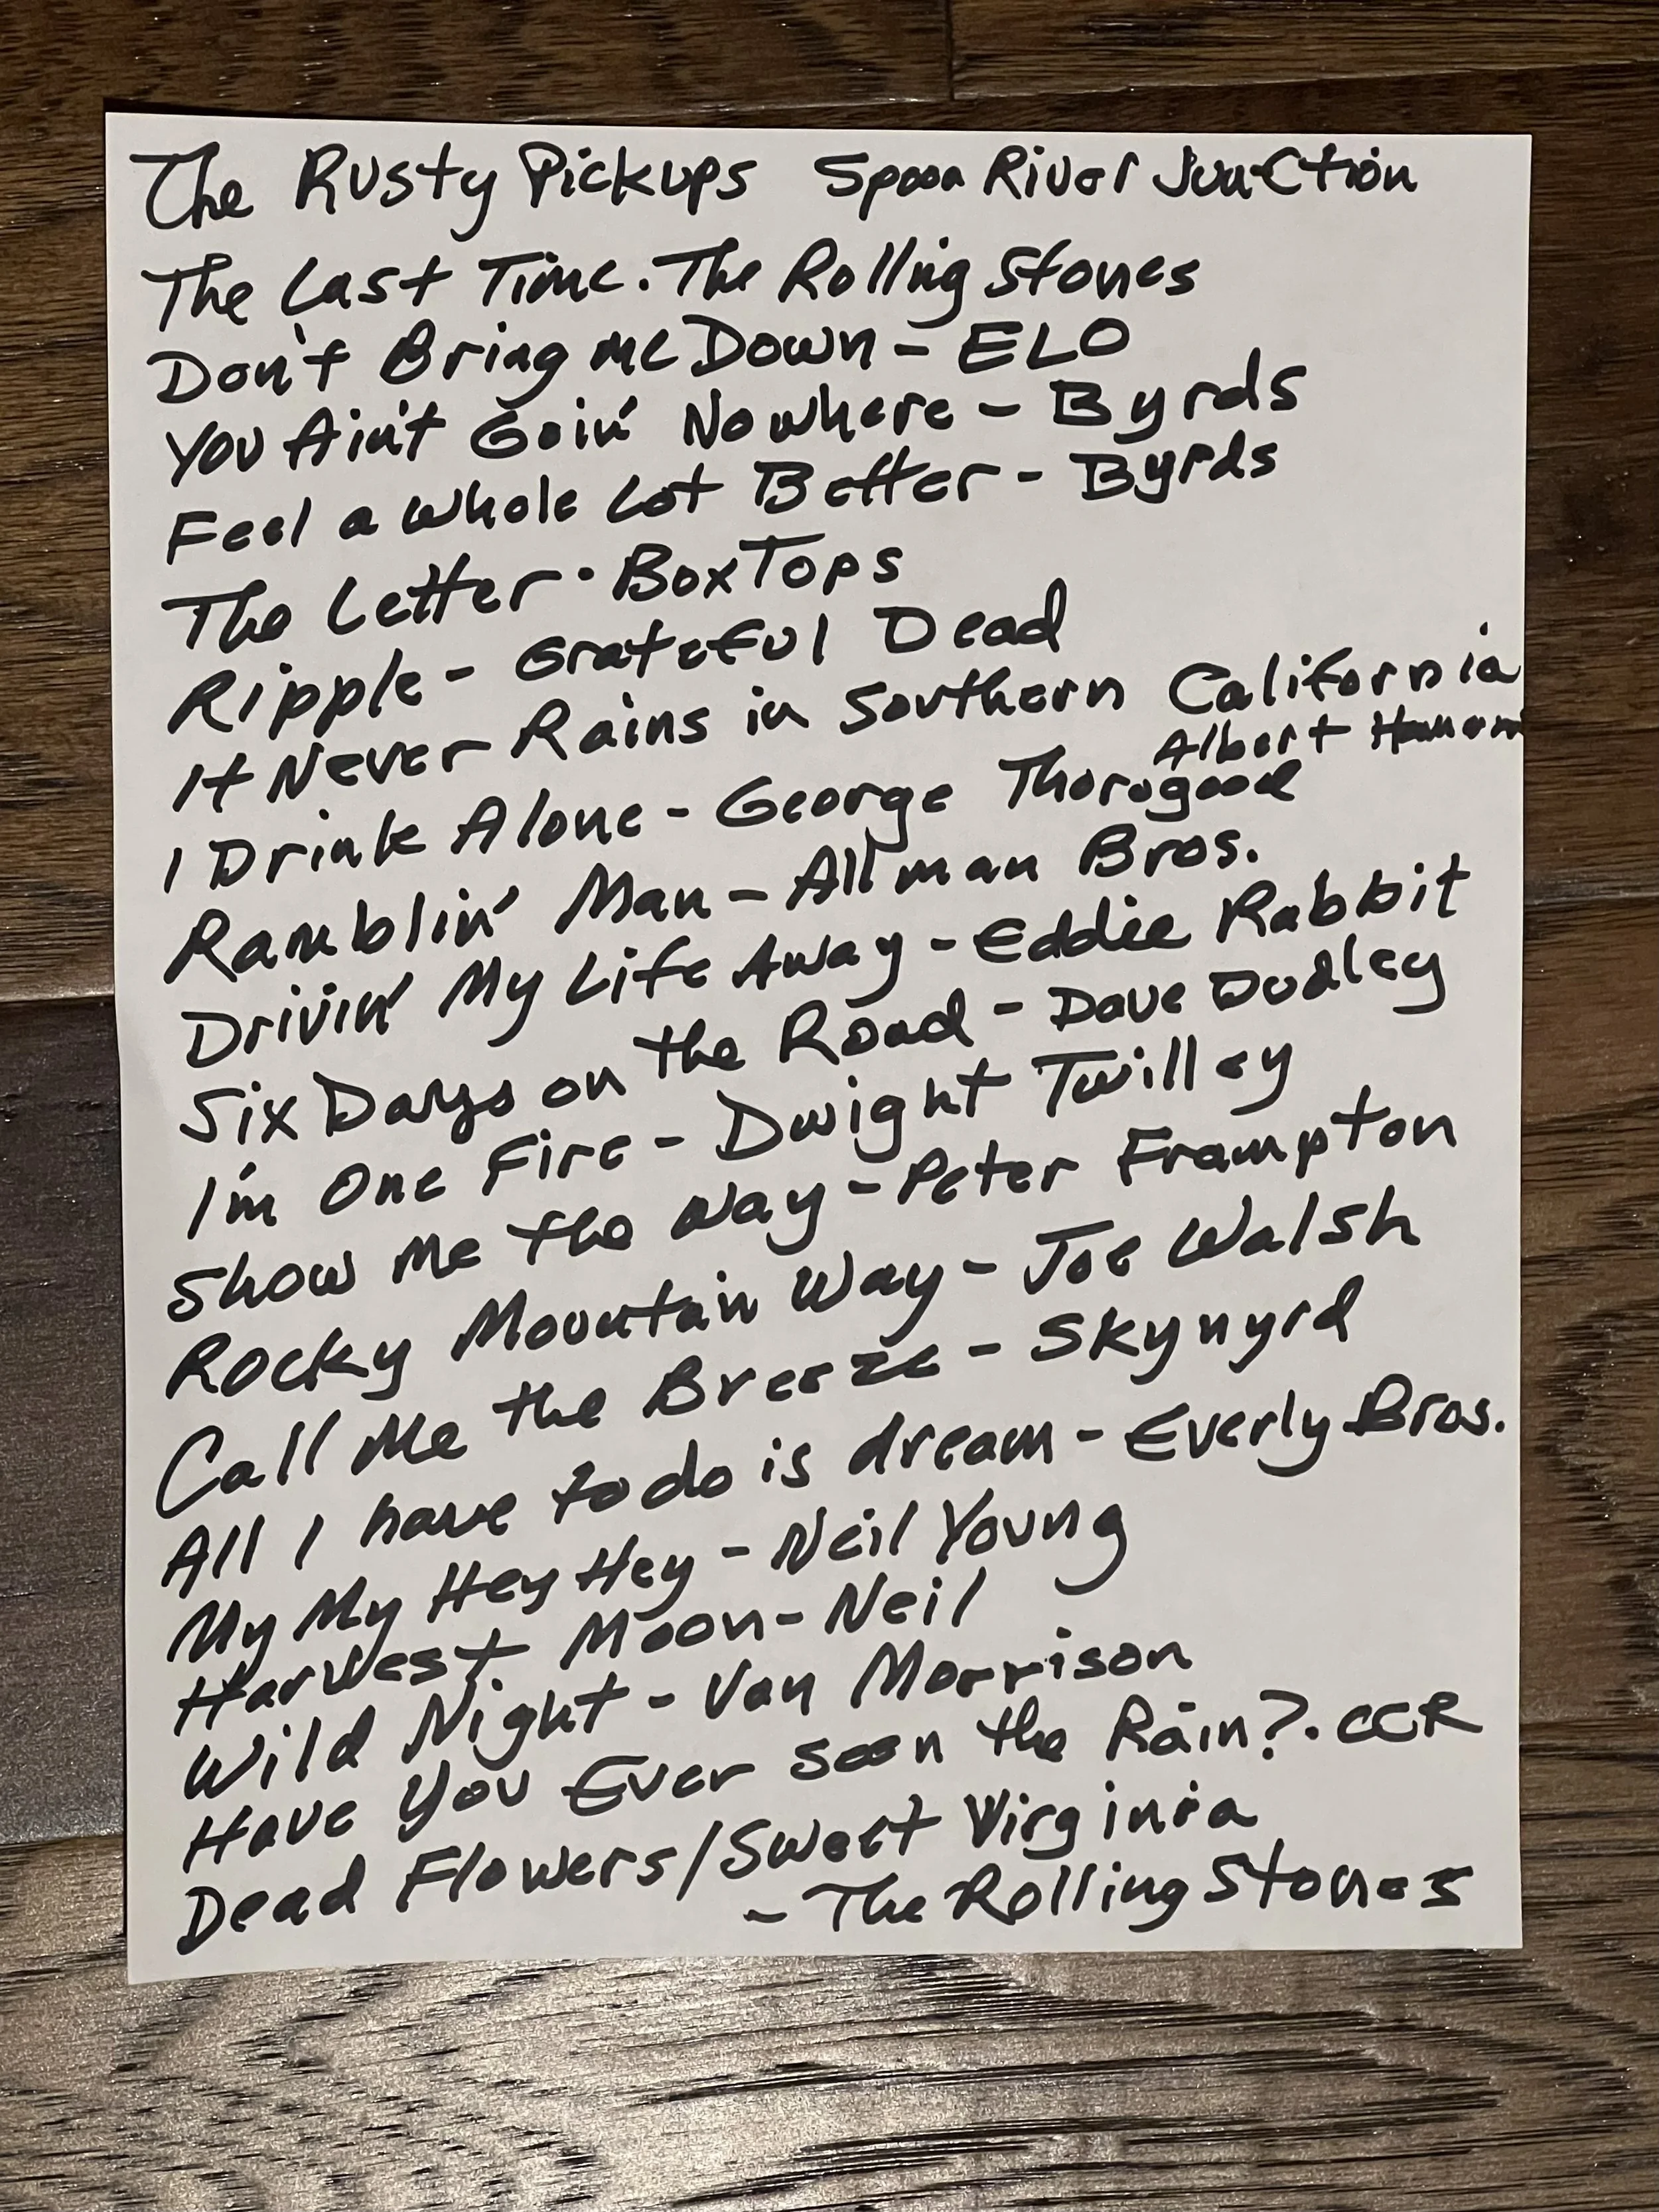 The Rusty Pickups Spoon River Junction
The Last Time. The Rolling Stones
Don't Bring me Down - ELO
You Ain't Goin' Nowhere - Byrds
Feel a Whole Lot Better - Byrds
The Letter · Box Tops
Ripple - Grateful Dead
It Never Rains in Southern California
Albert Hammond
I Drink Alone - George Thorogood
Ramblin' Man - Allman Bros.
Drivin' My Life Away - Eddie Rabbit
Six Days on the Road - Dave Dudley
I'm One Fire - Dwight Twilley
Show Me the Way - Peter Frampton
Rocky Mountain Way - Joe Walsh
Call Me the Breeze - Skynyrd
All I have to do is dream - Everly Bros.
My My Hey Hey - Neil Young
Harvest Moon - Neil
Wild Night - Van Morrison
Have You Ever seen the Rain?. CCR
Dead Flowers/Sweet Virginia
- The Rolling Stones